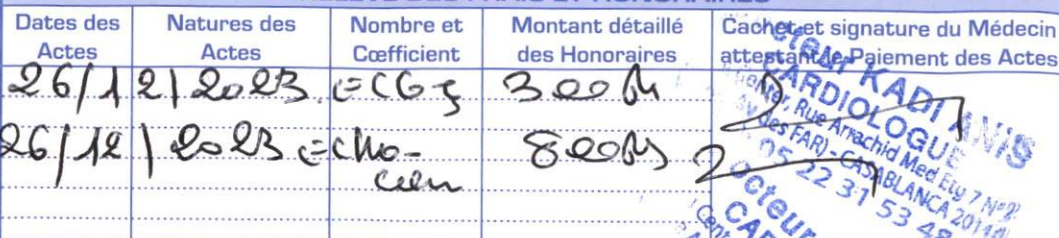 RELEVE DES FRAIS ET HONORAIRES
Dates des Actes
Natures des Actes
Nombre et Cœfficient
Montant détaillé des Honoraires
Cachet et signature du Médecin attestant le Paiement des Actes
26/12/2023 ECG 300
26/12/2023 Echo- 800
Docteur KADI ANIS
CARDIOLOGUE
Center, Rue Arrachid Med Etg 7 N°2
(Av des FAR) - CASABLANCA 2014
05 22 31 53 48
Docteur